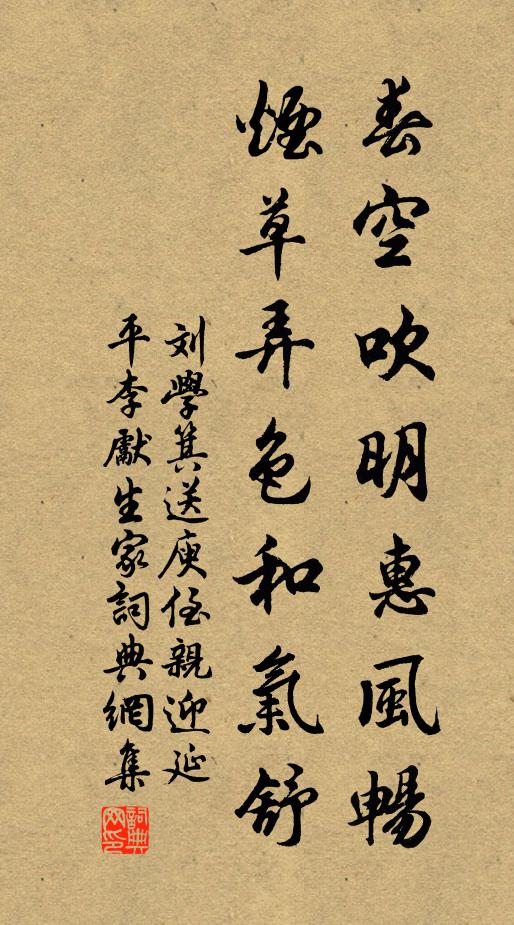 春空吹明惠風暢
煙草弄色和氣舒
刘學箕送庾侄親迎延
平李獻生家詞典網集
詞典网印